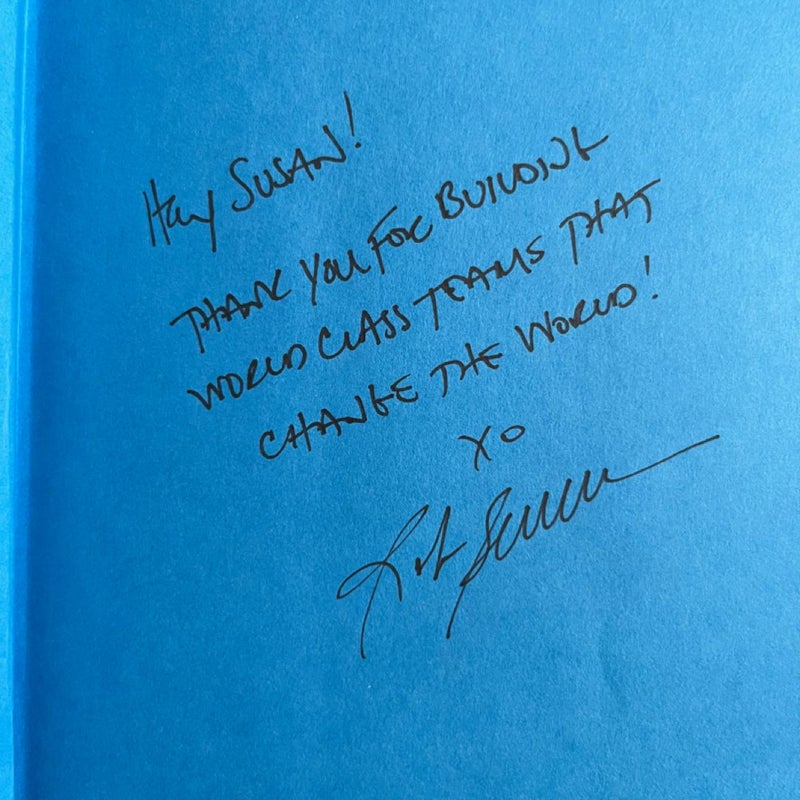 Hey SUSAN!
THANK YOU FOR BUILDING
WORLD CLASS TEAMS THAT
CHANGE THE WORLD!
XO